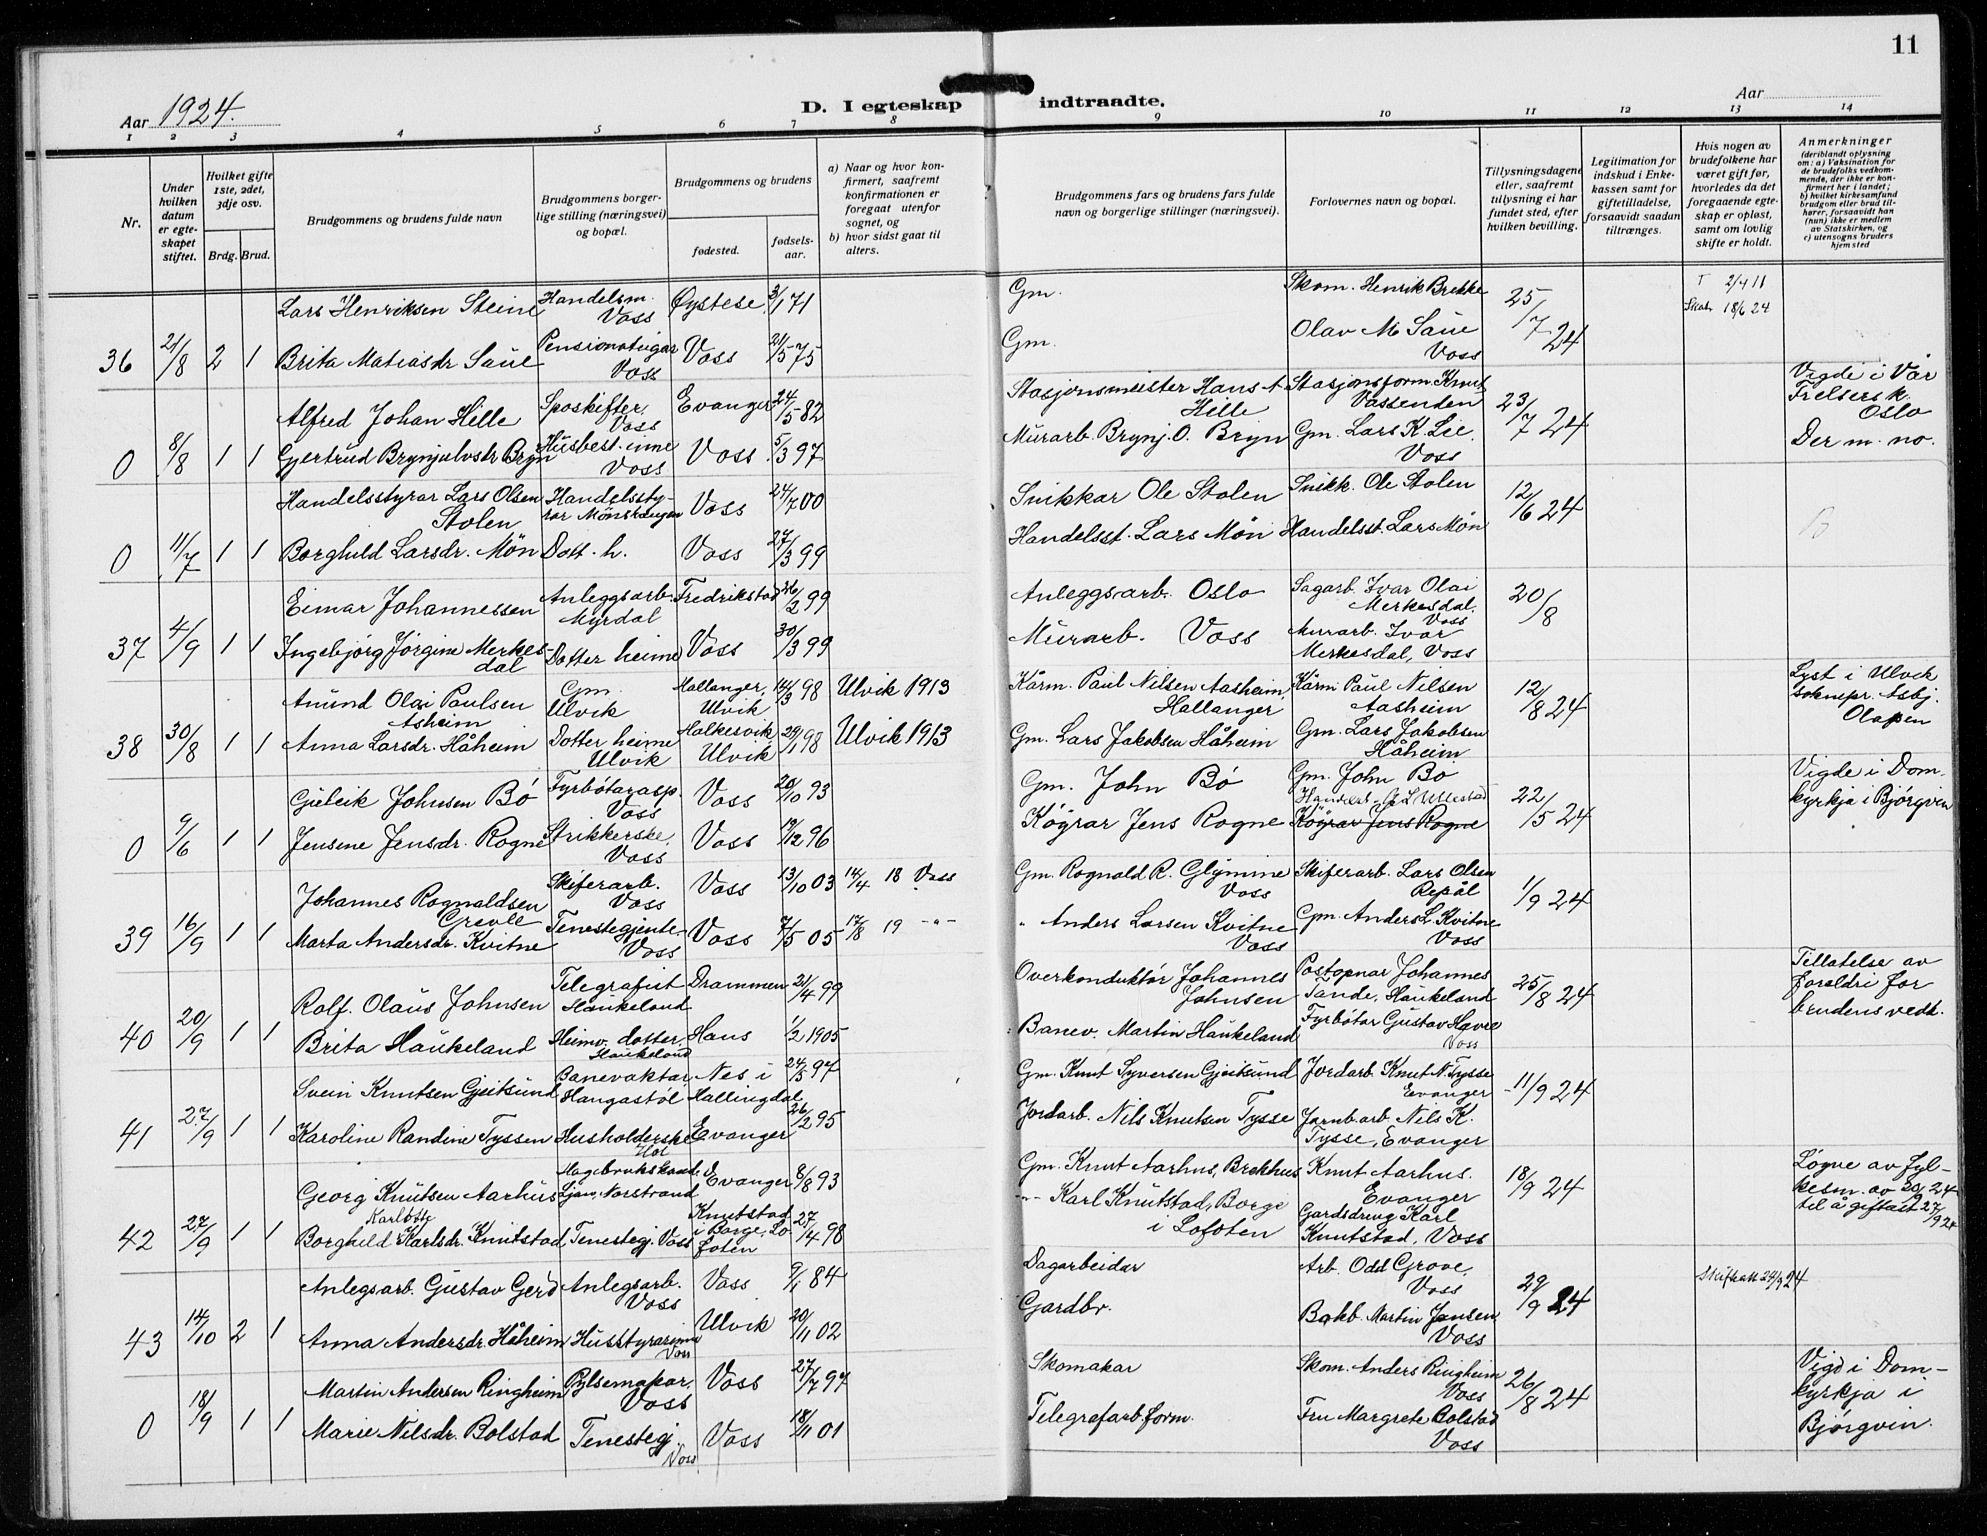 11
Aar 1924.
D. I egteskap indtraadte.
Aar
1 2 3 4 5 6 7 8 9 10 11 12 13 14
Nr.
Under hvilken datum er egteskapet stiftet.
Hvilket gifte 1ste, 2det, 3dje osv.
Brdg. Brud.
Brudgommens og brudens fulde navn
Brudgommens borgerlige stilling (næringsvei) og bopæl.
Brudgommens og brudens
fødested.
fødselsaar.
a) Naar og hvor konfirmert, saafremt konfirmationen er foregaat utenfor sognet, og
b) hvor sidst gaat til alters.
Brudgommens fars og brudens fars fulde navn og borgerlige stillinger (næringsvei).
Forlovernes navn og bopæl.
Tillysningsdagene eller, saafremt tillysning ei har fundet sted, efter hvilken bevilling.
Legitimation for indskud i Enkekassen samt for giftetilladelse, forsaavidt saadan tiltrænges.
Hvis nogen av brudefolkene har været gift før, hvorledes da det foregaaende egteskap er opløst, samt om lovlig skifte er holdt.
Anmerkninger
(deriblandt oplysning om: a) Vaksination for de brudefolks vedkommende, der ikke er konfirmert her i landet; b) hvilket kirkesamfund brudgom eller brud tilhører, forsaavidt han (hun) ikke er medlem av Statskirken, og c) utensogns bruders hjemsted
Lars Henriksen Steine Handelsm. Voss Øystese 3/1 71 Gm. Skom. Henrik Brekke 25/7 24 T 2/4 11 Skab 18/6 24
36 21/8 2 1 Brita Matiasdr Saue Pensionateigar Voss Voss 21/5 75 Gm. Olav M. Saue Voss
Alfred Johan Hille Sposkifter. Voss Evanger 24/5 82 Stasjonsmeister Hans A Hille Stasjonsform. Knut Vassenden 23/7 24 Vigde i Vår Frelsers k. Oslo
0 8/8 1 1 Gjertrud Brynjulvsdr Bryn Husbest. inne Voss Voss 5/3 97 Murarb. Brynj. O. Bryn Gm. Lars K. Lie Voss Der m. no.
Handelsstyrar Lars Olsen Stolen Handelsstyrar Mønshaugen Voss 24/7 00 Snikkar Ole Stolen Snikk. Ole Stolen 12/6 24
0 11/7 1 1 Borghild Larsdr. Møn Dott. h. Voss 27/3 99 Handelsst. Lars Møn Handelsst. Lars Møn
Eimar Johannessen Anleggsarb. Myrdal Fredrikstad 26/2 99 Anleggsarb. Oslo Sagarb. Ivar Olai Merkesdal. Voss 20/8
37 4/9 1 1 Ingebjørg Jørgine Merkesdal Dotter heime Voss 30/3 99 Murarb. Voss Murarb. Ivar Merkesdal, Voss
Amund Olai Paulsen Asheim Gm. Ulvik Hallanger, Ulvik 14/3 98 Ulvik 1913 Kårm. Paul Nilsen Aasheim Hallanger Kårm Paul Nilsen Aasheim 12/8 24 Lyst i Ulvik soknepr. Asbj. Olafsen
38 30/8 1 1 Anna Larsdr. Håheim Dotter heime Ulvik Holkesvik Ulvik 29/1 98 Ulvik 1913 Gm. Lars Jakobsen Håheim Gm. Lars Jakobsen Håheim
Gjeleik Johnsen Bø Fyrbøtarasp. Voss Voss 20/10 93 Gm. John Bø Gm. John Bø 22/5 24 Vigde i Domkyrkja i Bjørgvin
0 9/6 1 1 Jensine Jensdr. Rogne Strikkerske. Voss Voss 19/12 96 Køyrar Jens Rogne Handelsb. L Ullestad Køyrar Jens Rogne
Johannes Rognaldsen Grevle Skiferarb. Voss Voss 13/10 03 14/4 18 Voss Gm. Rognald R. Glymine Voss Skiferarb. Lars Olsen Repål 1/9 24
39 16/9 1 1 Marta Andersdr. Kvitne Tenestegjente Voss Voss 7/5 05 17/8 19 -"- " Anders Larsen Kvitne Voss Gm. Anders L. Kvitne Voss
Rolf. Olaus Johnsen Telegrafist Haukeland Drammen 21/4 99 Overkonduktør Johannes Johnsen Postopnar Johannes Tande, Haukeland 25/8 24 Tillatelse av foreldri for brudens vedk.
40 20/9 1 1 Brita Haukeland Heimv. dotter. Haukeland Haus 1/2 1905 Banev. Martin Haukeland Fyrbøtar Gustav Havre Voss
Svein Knutsen Gjeitsund Banevaktar Haugastøl Nes i Hallingdal 24/5 97 Gm. Knut Syversen Gjeitsund Jordarb. Knut N. Tysse Evanger 11/9 24
41 27/9 1 1 Karoline Randine Tyssen Husholderske Hol Evanger 26/2 95 Jordarb. Nils Knutsen Tysse Jarnbarb Nils K. Tysse, Evanger
Georg Knutsen Aarhus Hagebrukskand. Ljan, Norstrand Evanger 8/8 93 Gm. Knut Aarhus, Brekhus Knut Aarhus. Evanger 18/9 24 Løyve av fylkesm. av 20/9 24 til å giftast 27/9 24
42 27/9 1 1 Karlotte Borghild Karlsdr. Knutstad Tenestegj. Voss Knutstad i Borge, Lofoten 27/4 98 -"- Karl Knutstad, Borge i Lofoten Gardsdreng Karl Knutstad, Voss
Anlegsarb. Gustav Gerd Anlegsarb. Voss Voss 9/1 84 Dagarbeidar Arb. Odd Grove, Voss 29/9 24 Skifteatt 24/9 24
43 14/10 2 1 Anna Andersdr. Håheim Husstyrarinna Voss Ulvik 20/11 02 Gardbr. Bakb. Martin Jansen Voss
Martin Andersen Ringheim Pylsemakar. Voss Voss 27/7 97 Skomakar Skom. Anders Ringheim Voss 26/8 24 Vigd i Domkyrkja i Bjørgvin.
0 18/9 1 1 Marie Nilsdr. Bolstad Tenestegj Voss Voss 18/11 01 Telegrafarb.form. Fru Margrete Bolstad Voss